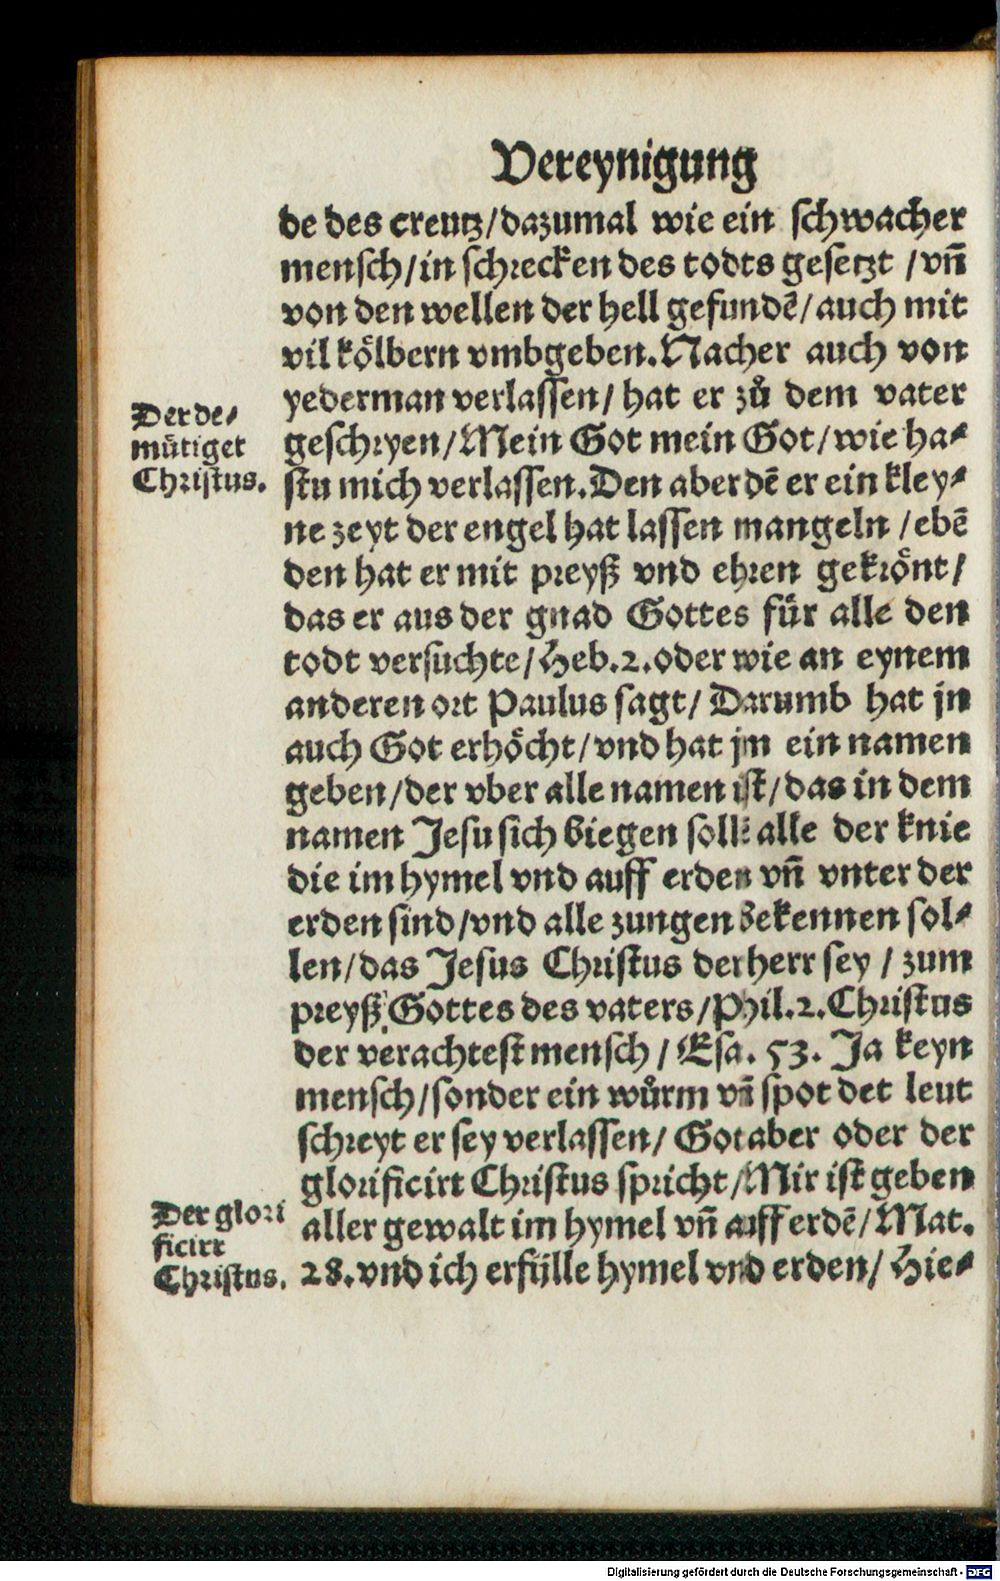 Vereynigung
de des creutz/dazumal wie ein schwacher
mensch/in schrecken des todts gesetzt /vn̄
von den wellen der hell gefundē/auch mit
vil kölbern vmbgeben. Nacher auch von
yederman verlassen/ hat er zů dem vater
geschryen/Mein Got mein Got/wie ha⸗
stu mich verlassen. Den aber dē er ein kley⸗
ne zeyt der engel hat lassen mangeln /ebē
den hat er mit preyß vnd ehren gekrönt/
das er aus der gnad Gottes für alle den
todt versuchte/Heb.2.oder wie an eynem
anderen ort Paulus sagt/ Darumb hat jn
auch Got erhöcht/vnd hat jm ein namen
geben/der vber alle namen ist/das in dem
namen Jesu sich biegen solle alle der knie
die im hymel vnd auff erden vn̄ vnter der
erden sind/vnd alle zungen bekennen sol⸗
len/das Jesus Christus der herr sey / zum
preyß Gottes des vaters/Phil.2.Christus
der verachtest mensch / Esa. 53. Ja keyn
mensch/sonder ein wůrm vn̄ spot det leut
schreyt er sey verlassen/ Got aber oder der
glorificirt Christus spricht/Mir ist geben
aller gewalt im hymel vn̄ auff erdē/Mat.
28.vnd ich erfülle hymel vnd erden/ Hie⸗
Der de⸗
mütiget
Christus.
Der glori
ficirt
Christus.
Digitalisierung gefördert durch die Deutsche Forschungsgemeinschaft - DFG